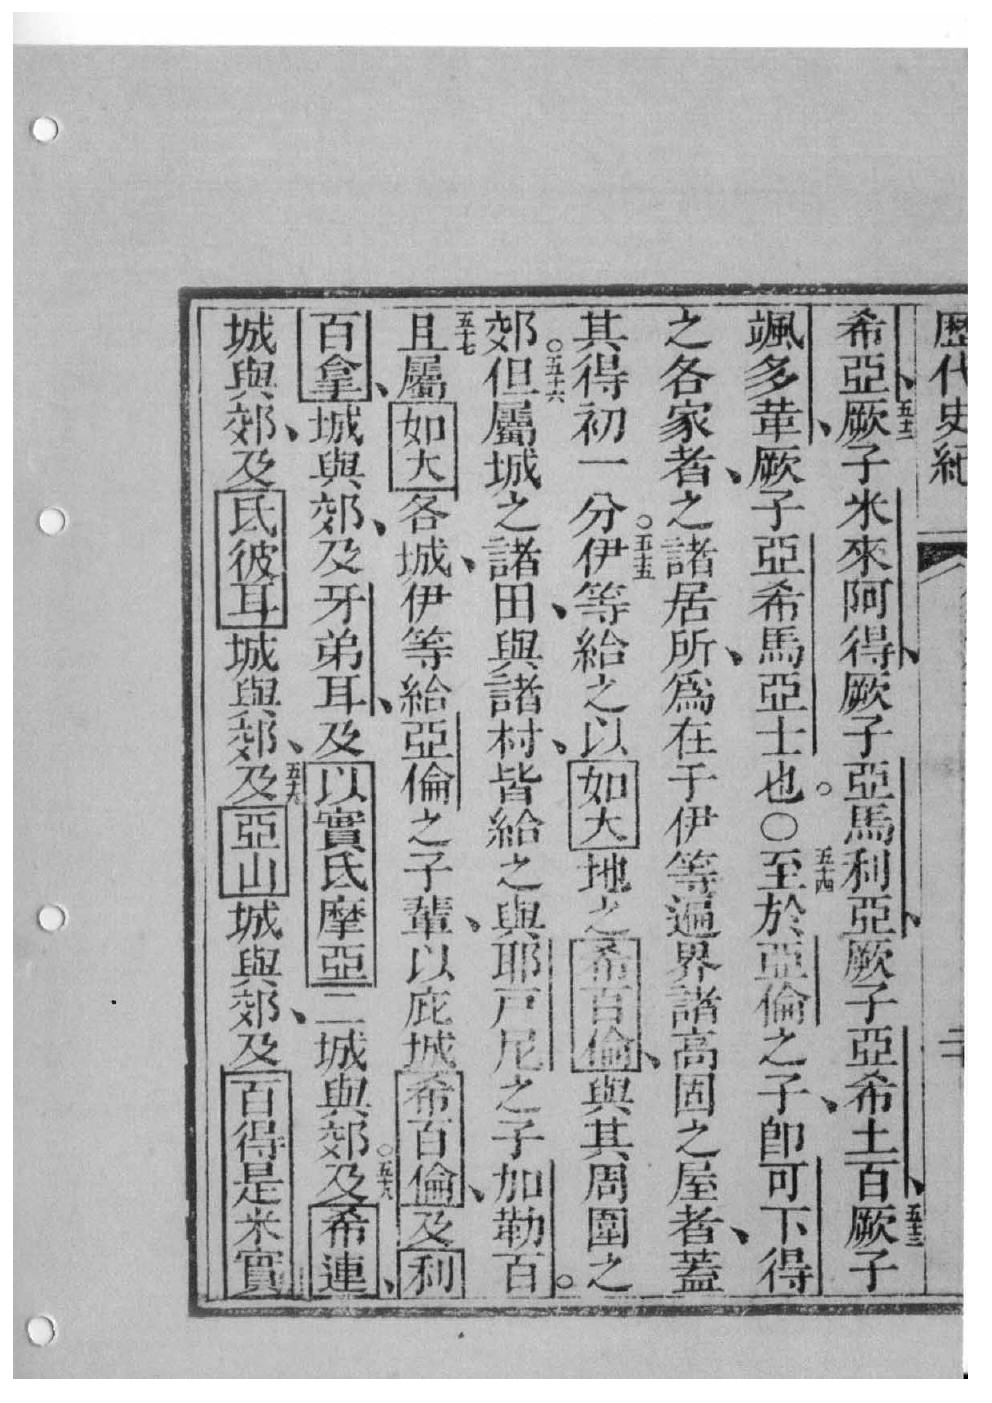 歷代史紀
二十
希亞厥子米來阿得厥子亞馬利亞厥子亞希土百厥子
颯多革厥子亞希馬亞士也。〇至於亞倫之子即可下得
之各家者之諸居所為在于伊等遍界諸高固之屋者蓋
其得初一分。伊等給之以如大地之希百倫與其周圍之
郊。但屬城之諸田與諸村皆給之與耶戶尼之子加勒百。
且屬如大各城伊等給亞倫之子輩以庇城希百倫及利
百拿城與郊及牙弟耳及以實氐摩亞二城與郊。及希連
城與郊及氐彼耳城與郊及亞山城與郊及百得是米實
五十二
五十三
五十四
五十五
五十六
五十七
五十八
五十九